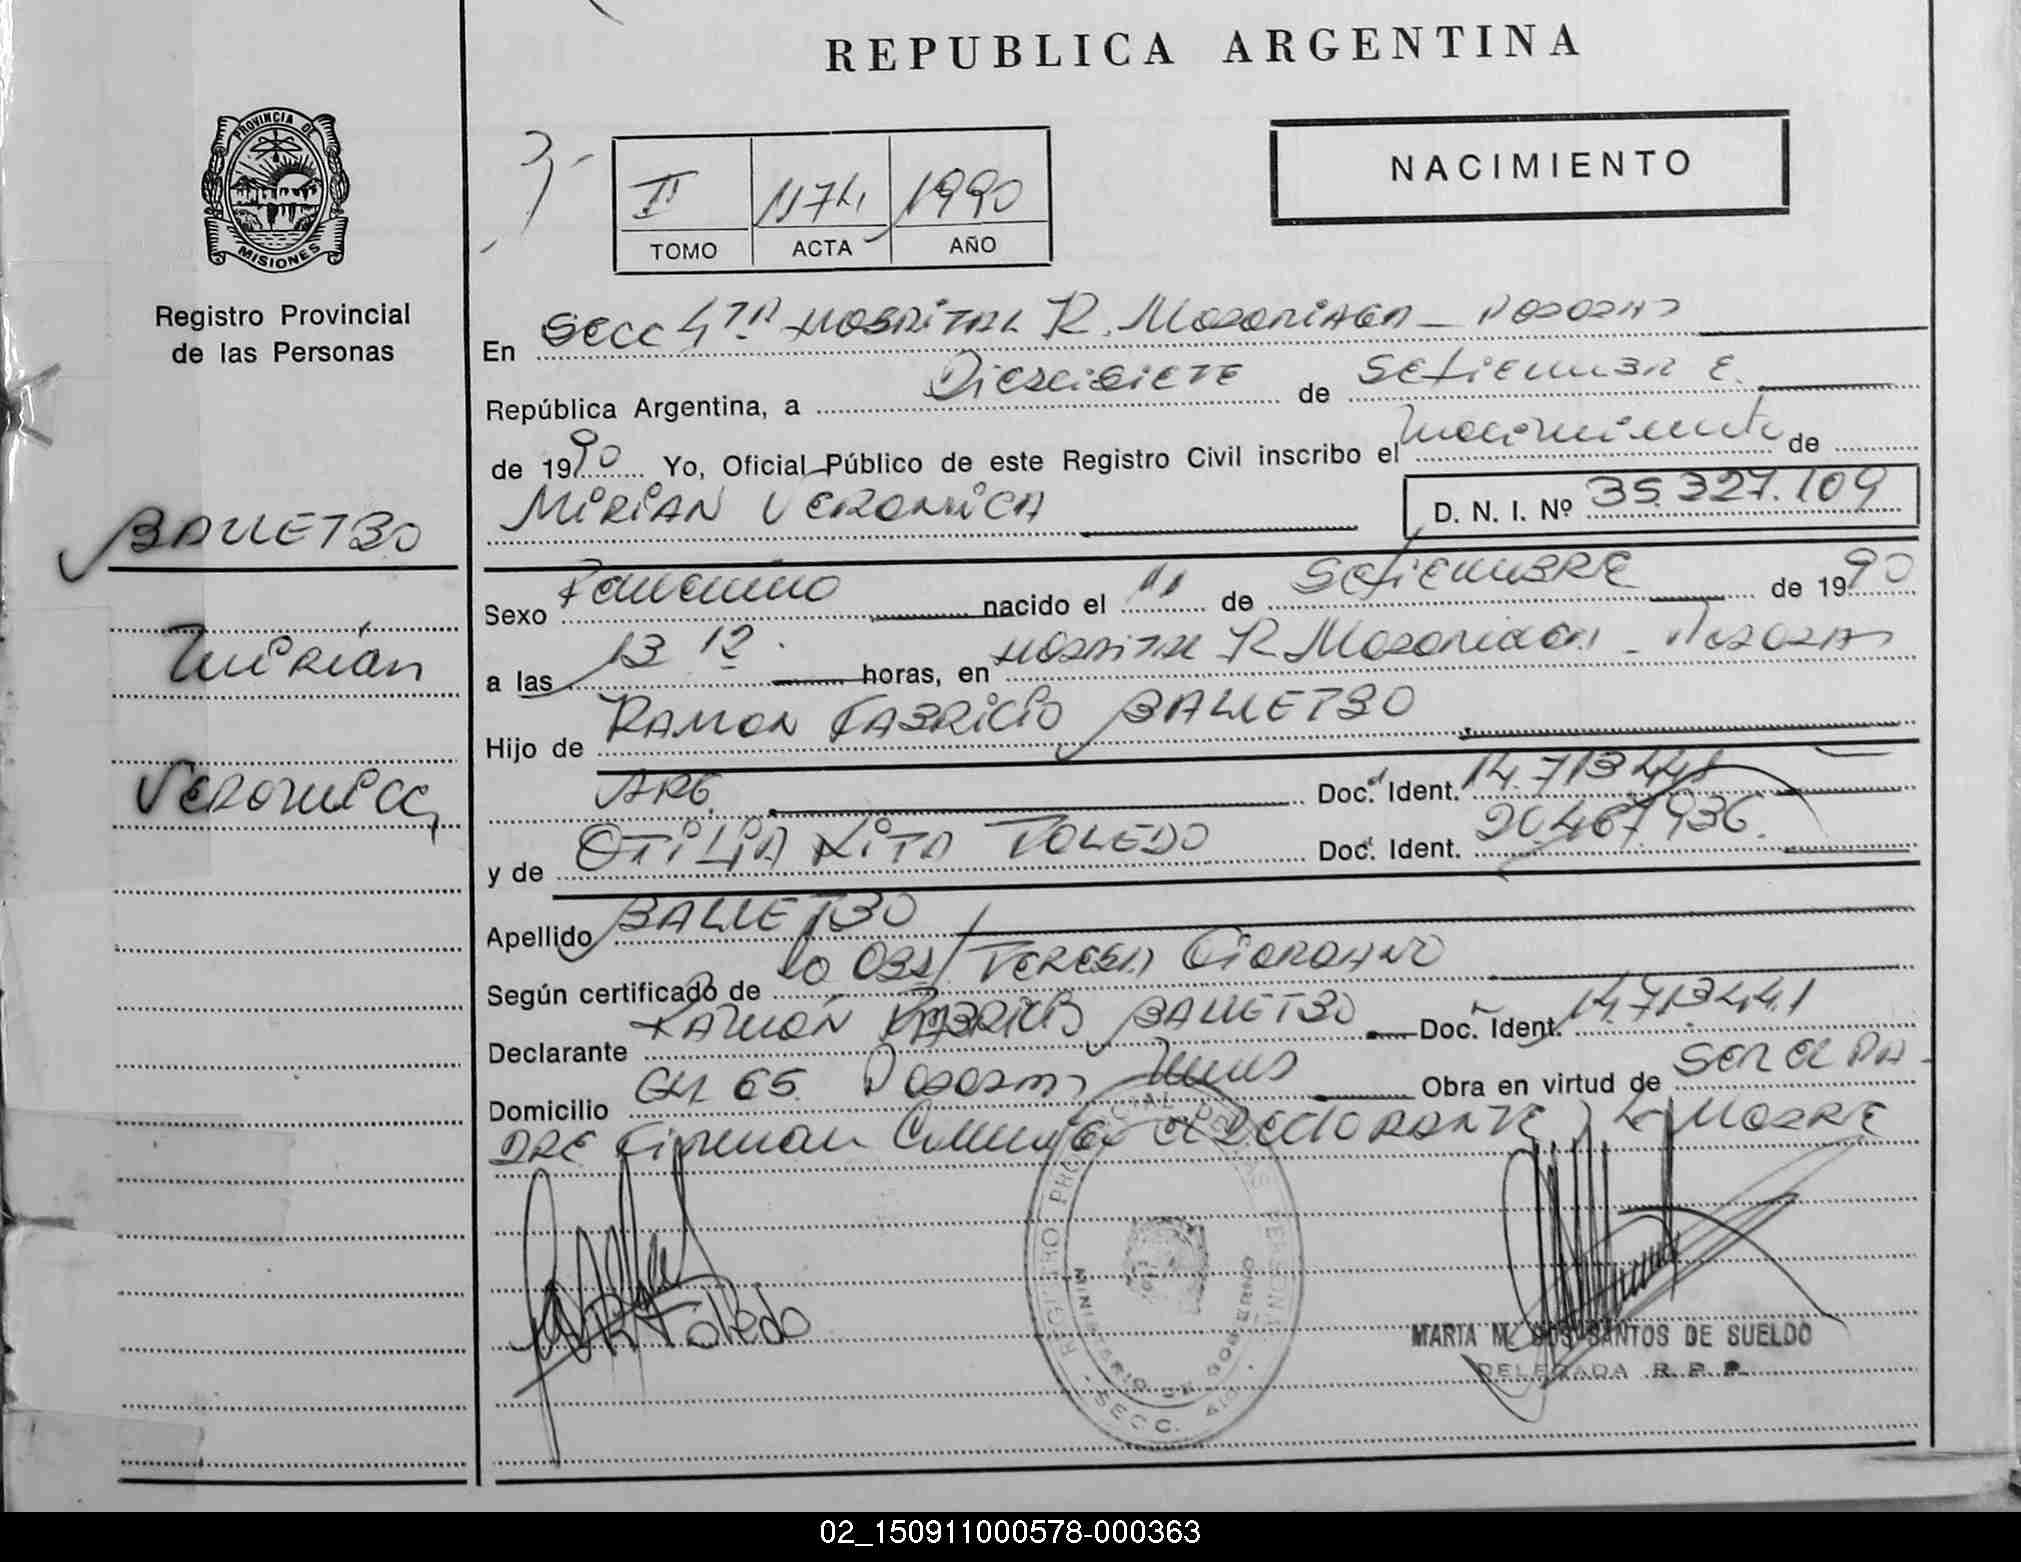 REPUBLICA ARGENTINA
PROVINCIA DE
MISIONES
Registro Provincial
de las Personas
NACIMIENTO
II 1174 1990
TOMO ACTA AÑO
En SECC 4TA HOSPITAL R. MADARIAGA - POSADAS
República Argentina, a Diezcisiete de SETIEMBRE
de 1990 Yo, Oficial Público de este Registro Civil inscribo el nacimiento de
MIRIAN VERONICA D. N. I. Nº 35.327.109
BALLETBO
Mirián
VERONICA
Sexo Femenino nacido el 11 de SETIEMBRE de 1990
a las 13 12 horas, en HOSPITAL R MADARIAGA - POSADAS
Hijo de RAMON FABRICIO BALLETBO
ARG. Doc. Ident. 14.713.441
y de OTILIA RITA TOLEDO Doc. Ident. 20.467.936.
Apellido BALLETBO
Según certificado de la OBST/ TERESA GIORDANO
Declarante RAMÓN FABRICIO BALLETBO Doc. Ident. 14.713.441
Domicilio CH 65 POSADAS Mnes Obra en virtud de SER EL PA-
DRE Firman Conmigo el DECLARANTE y LA MADRE
Toledo
REGISTRO PROVINCIAL DE LAS PERSONAS
MINISTERIO DE GOBIERNO
SECC. 4ta.
MARTA M. DOS SANTOS DE SUELDO
DELEGADA R. P. P.
02_150911000578-000363